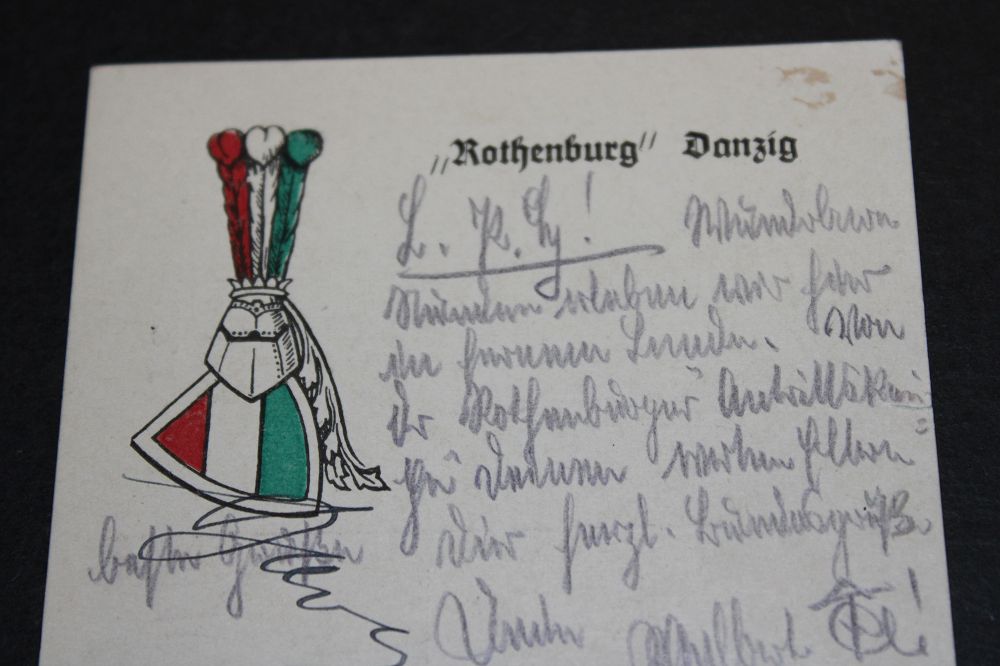 „Rothenburg" Danzig
Wunderbare
Stunden erleben wir hier
im fernen Lande. Von
der Rothenburger Antrittsknei=
Deinen werten Eltern
Dir herzl. Bundesgrüße.
beste Grüße